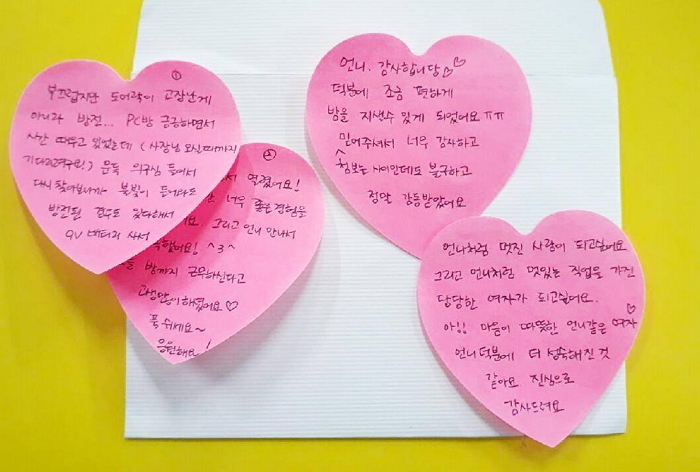 언니. 감사합니당♡♡
덕분에 조금 편하게
밤을 지샐수 있게 되었어요 ㅠㅠ
믿어주셔서 너무 감사하고
첨보는 사이인데도 불구하고
정말 감동받았어요
①
부끄럽지만 도어락이 고장난게
아니라 방전... PC방 궁금하면서
시간 때우고 있었는데 (사장님 오실때까지
기다리려구요!) 문득 의구심 들어서
다시 찾아보니까 불빛이 들어와도
방전된 경우도 있다해서
9V 배터리 사서
②
열렸어요!
너무 좋은 경험을
그리고 언니 만나서
^3^
밤까지 근무하신다고
고생많이하셨어요♡
푹 쉬세요~
응원해요!
언니처럼 멋진 사람이 되고싶어요
그리고 언니처럼 멋있는 직업을 가진
당당한 여자가 되고싶어요.
아!! 마음이 따뜻한 언니같은 여자♡
언니덕분에 더 성숙해진 것
같아요 진심으로
감사드려요